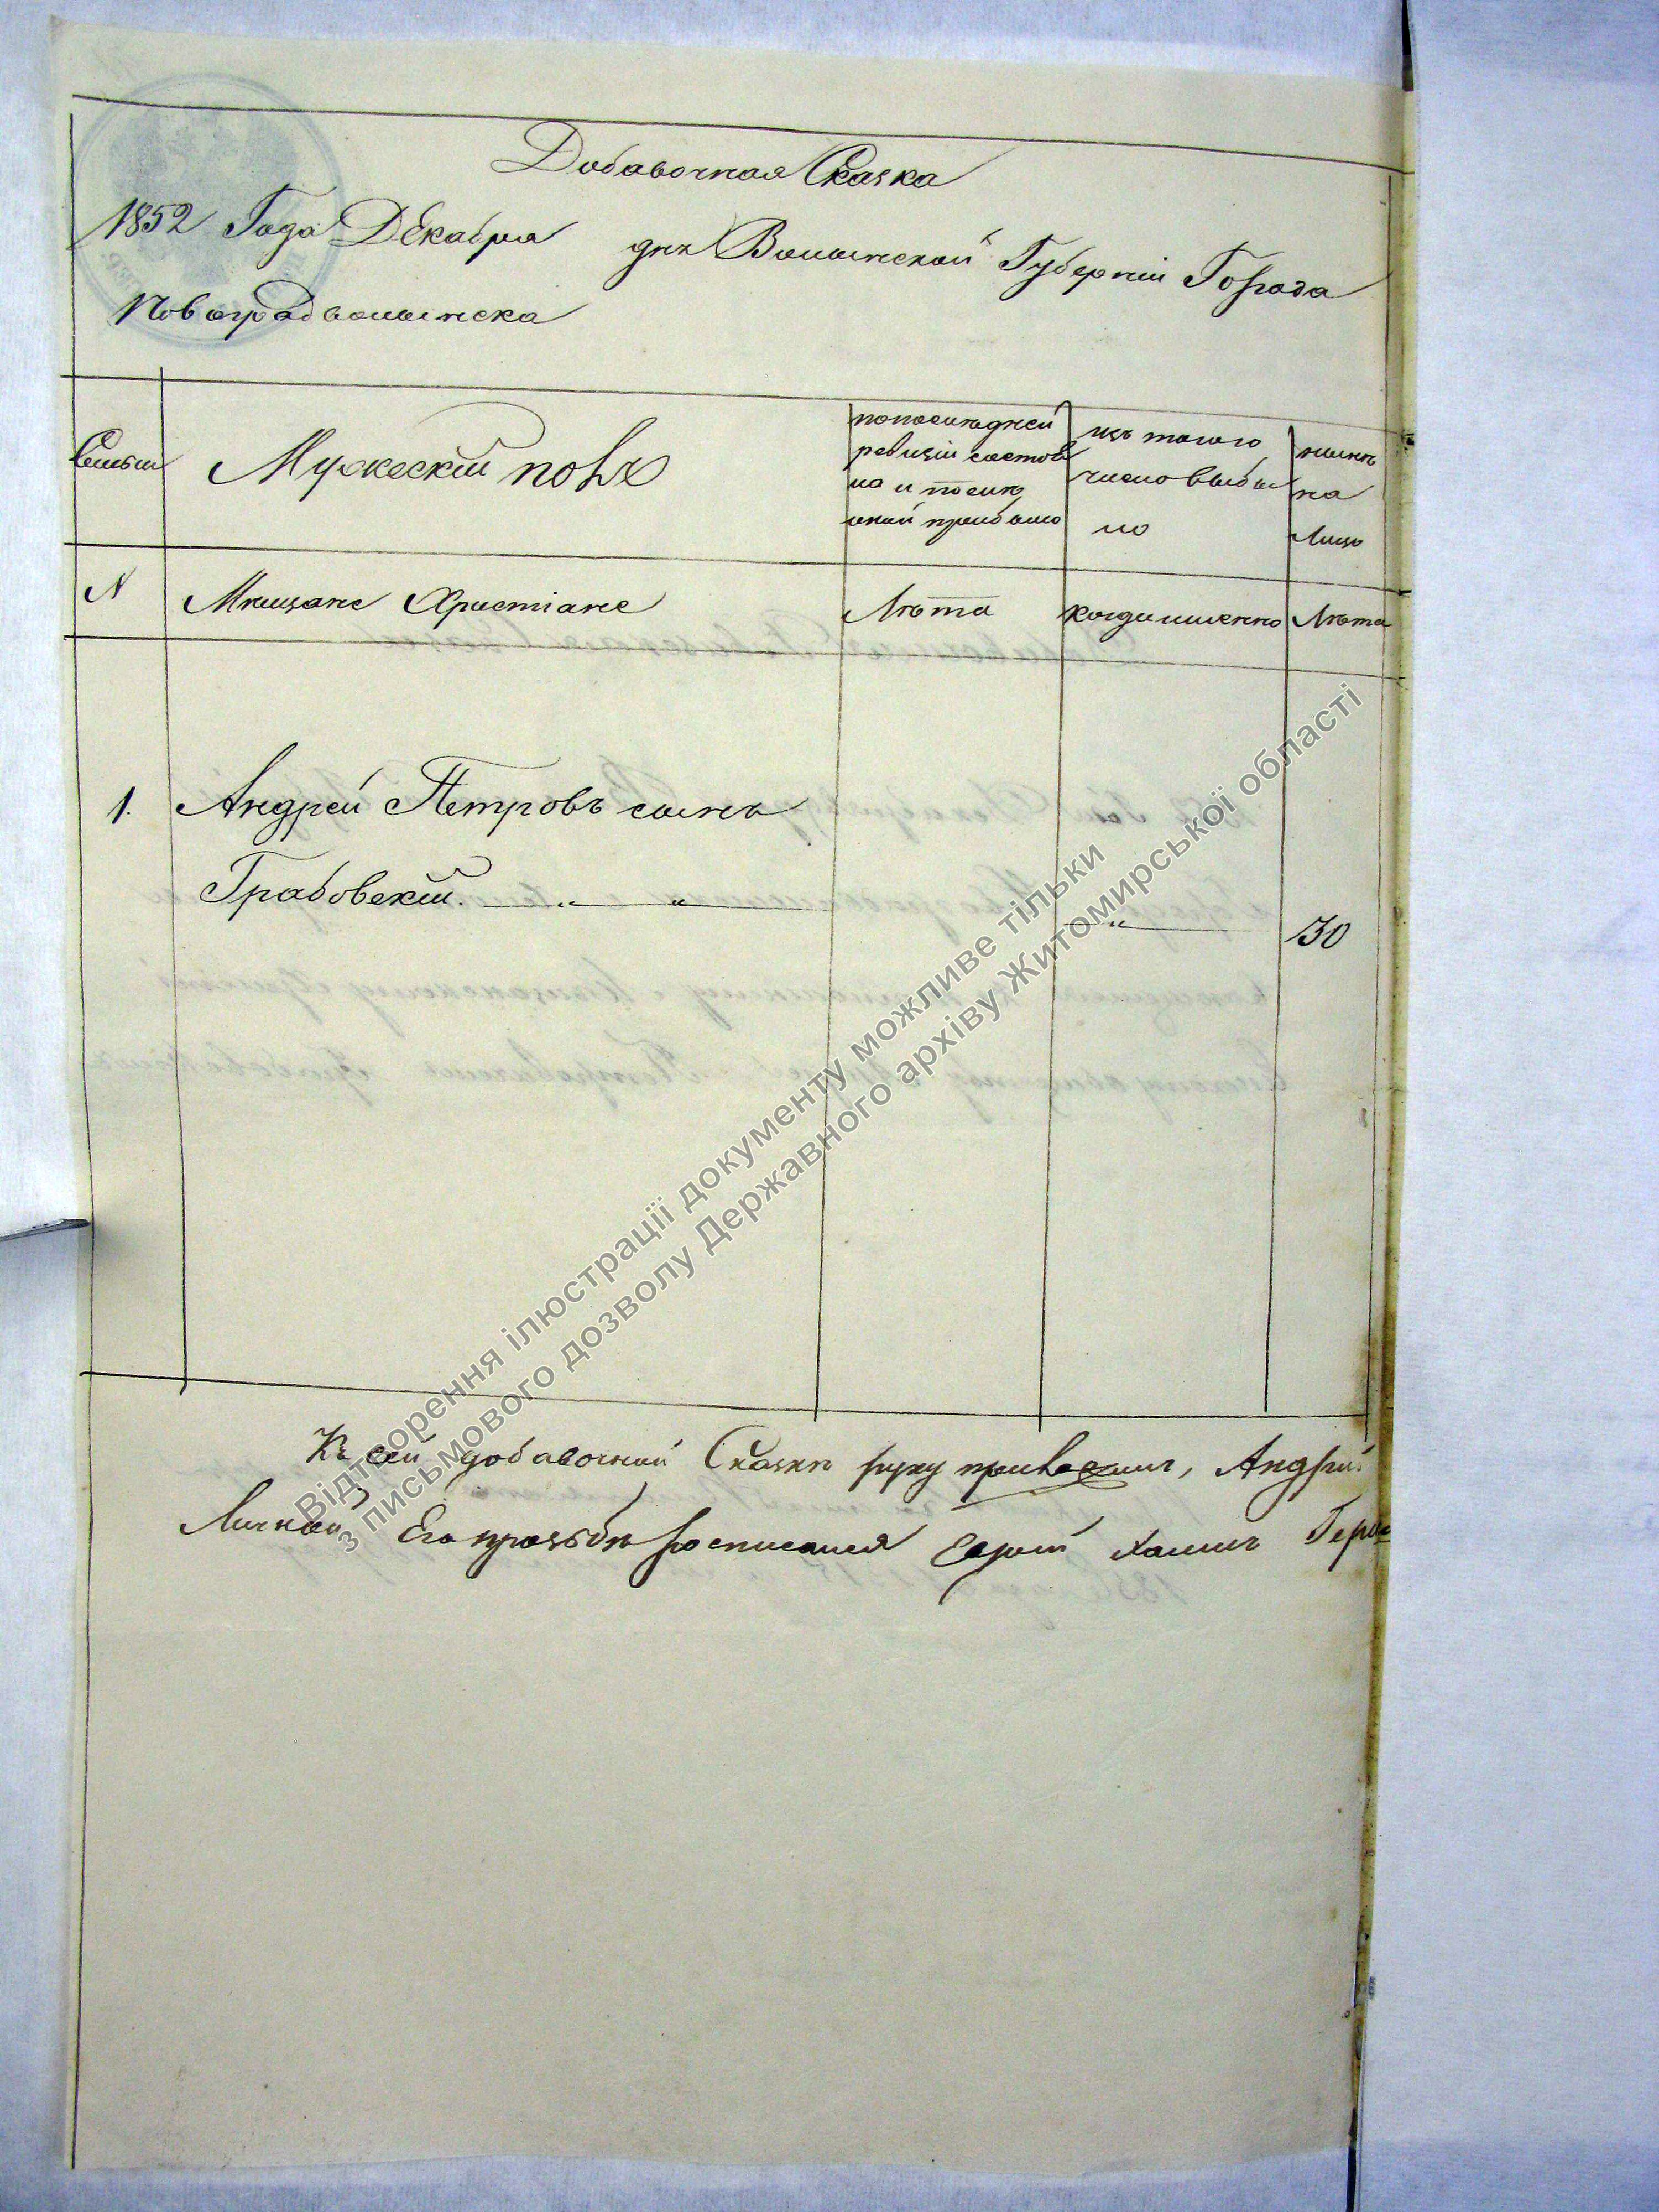 Добавочная Сказка
1852 Года Декабря дня Волынской Губерніи Города
Новоградволынска
Семьи
Мужескій полъ
попоследней
ревизіи состоя
ло и после
оной прибыло
изъ того
число выбы
ло
ныне
на
лицо
N
Мещане Христіане
Лета
когда именно
Лета
1. Андрей Петровъ сынъ
Грабовскій. 30
Къ сей добавочной Сказки руку , Андрей
Его прозьбе росписался
Відтворення ілюстрації документу можливе тільки
з письмового дозволу Державного архіву Житомирської області